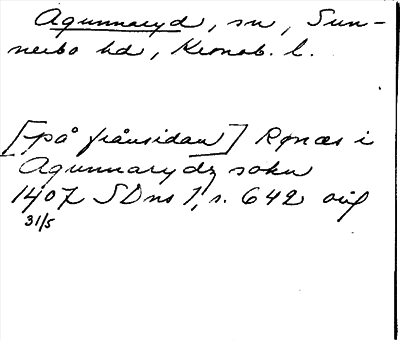 Agunnaryd, sn, Sun-
nerbo hd, Kronob. l.
[på frånsidan] Rønæs i
Agunnarydz sokn
1407 SDns 1, s. 642 orig
31/5